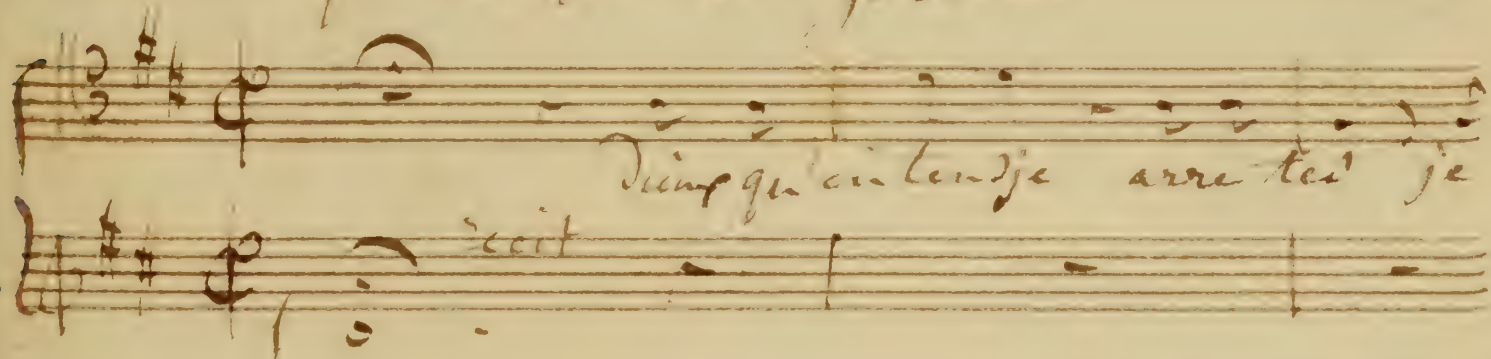 Dieux qu'entendje arretes je
recit